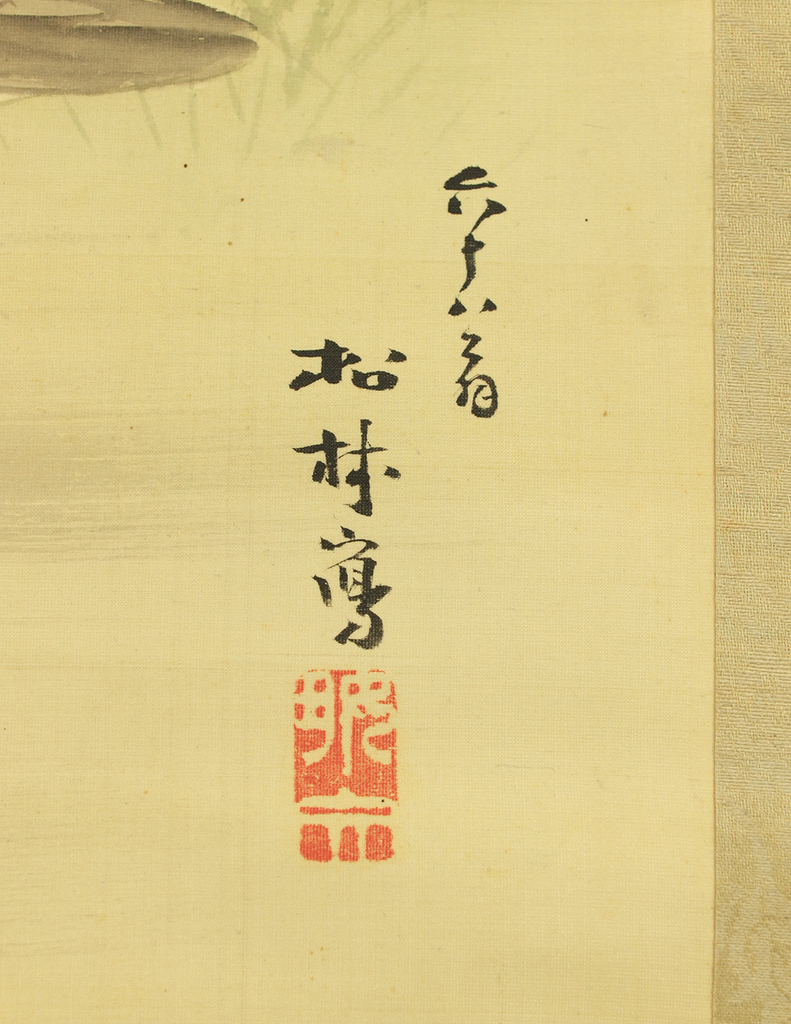 六十八翁
松林寫